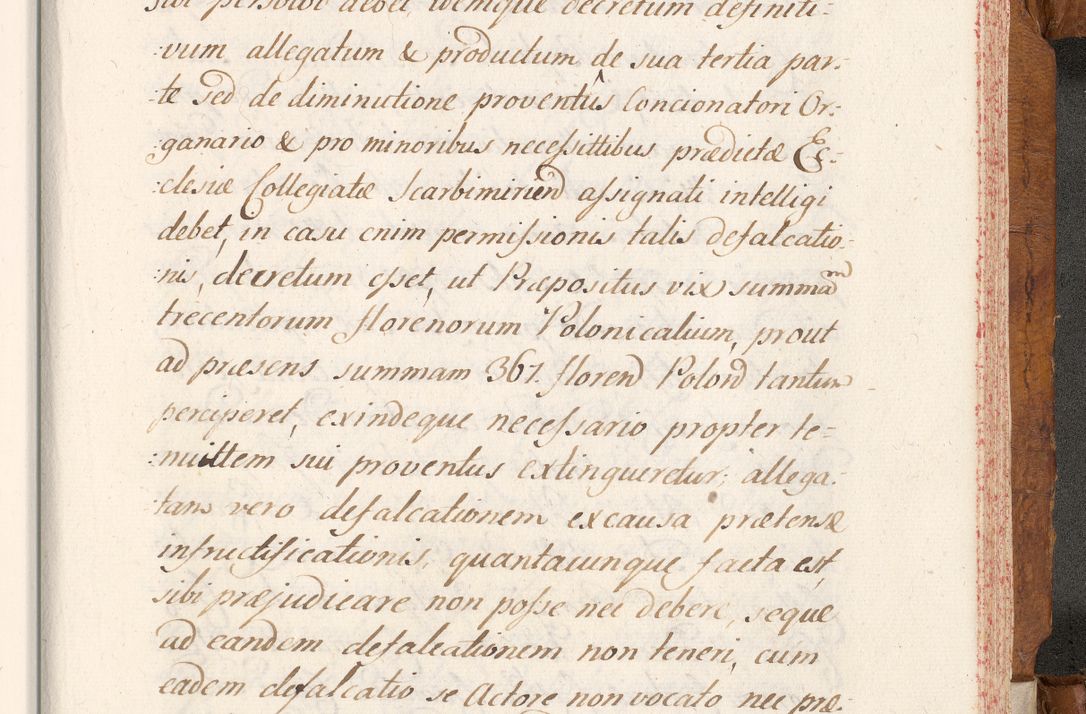 sibi persolvi debet, idemque decretum definiti-
:vum allegatum & productum de sua tertia par:
:te sed de diminutione proventûs Concionatori Or:
:ganario & pro minoribus necessittibus prædictæ Ec:
:clesiæ Collegiatæ Scarbimirien͠ assignati intelligi
debet, in casu enim permissionis talis defalcatio:
:nis, decretum esset, ut Præpositus vix summam
trecentorum florenorum Polonicalium, prout
ad præsens summam 367. floren͠ Polon͠ tantum
perciperet, exindeque necessario propter te=
:nuittem sui proventus extingueretur; allega:
:tam vero defalcationem ex causa prætensæ
infructificationis, quantacunque facta est,
sibi præjudicare non posse nec debere, seque
ad eandem defalcationem non teneri, cum
eadem defalcatio se Actore non vocato nec præ: